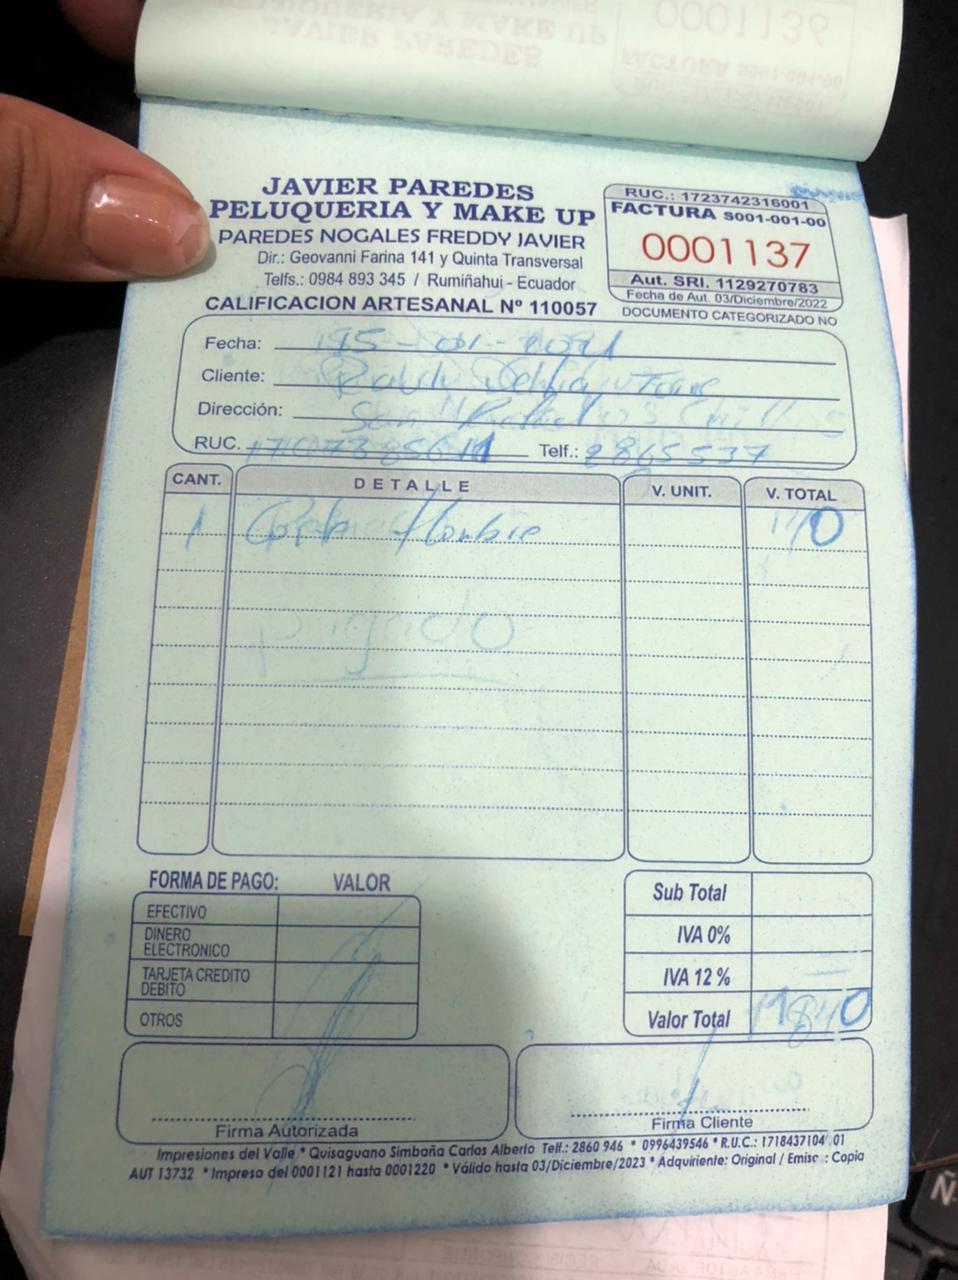 0001136
JAVIER PAREDES
PELUQUERIA Y MAKE UP
PAREDES NOGALES FREDDY JAVIER
Dir.: Geovanni Farina 141 y Quinta Transversal
Telfs.: 0984 893 345 / Rumiñahui - Ecuador
CALIFICACION ARTESANAL Nº 110057
RUC.: 1723742316001
FACTURA S001-001-00
0001137
Aut. SRI. 1129270783
Fecha de Aut. 03/Diciembre/2022
DOCUMENTO CATEGORIZADO NO
Fecha:
Cliente:
Dirección:
RUC. Telf.: 2865537
CANT. DETALLE V. UNIT. V. TOTAL
1 Hombre
pagado
FORMA DE PAGO: VALOR
EFECTIVO
DINERO ELECTRONICO
TARJETA CREDITO DEBITO
OTROS
Sub Total
IVA 0%
IVA 12 %
Valor Total
Firma Autorizada
Firma Cliente
Impresiones del Valle * Quisaguano Simbaña Carlos Alberto Telf.: 2860 946 * 0996439546 * R.U.C.: 1718437104 01
AUT 13732 * Impreso del 0001121 hasta 0001220 * Válido hasta 03/Diciembre/2023 * Adquiriente: Original / Emisc : Copia
Ñ